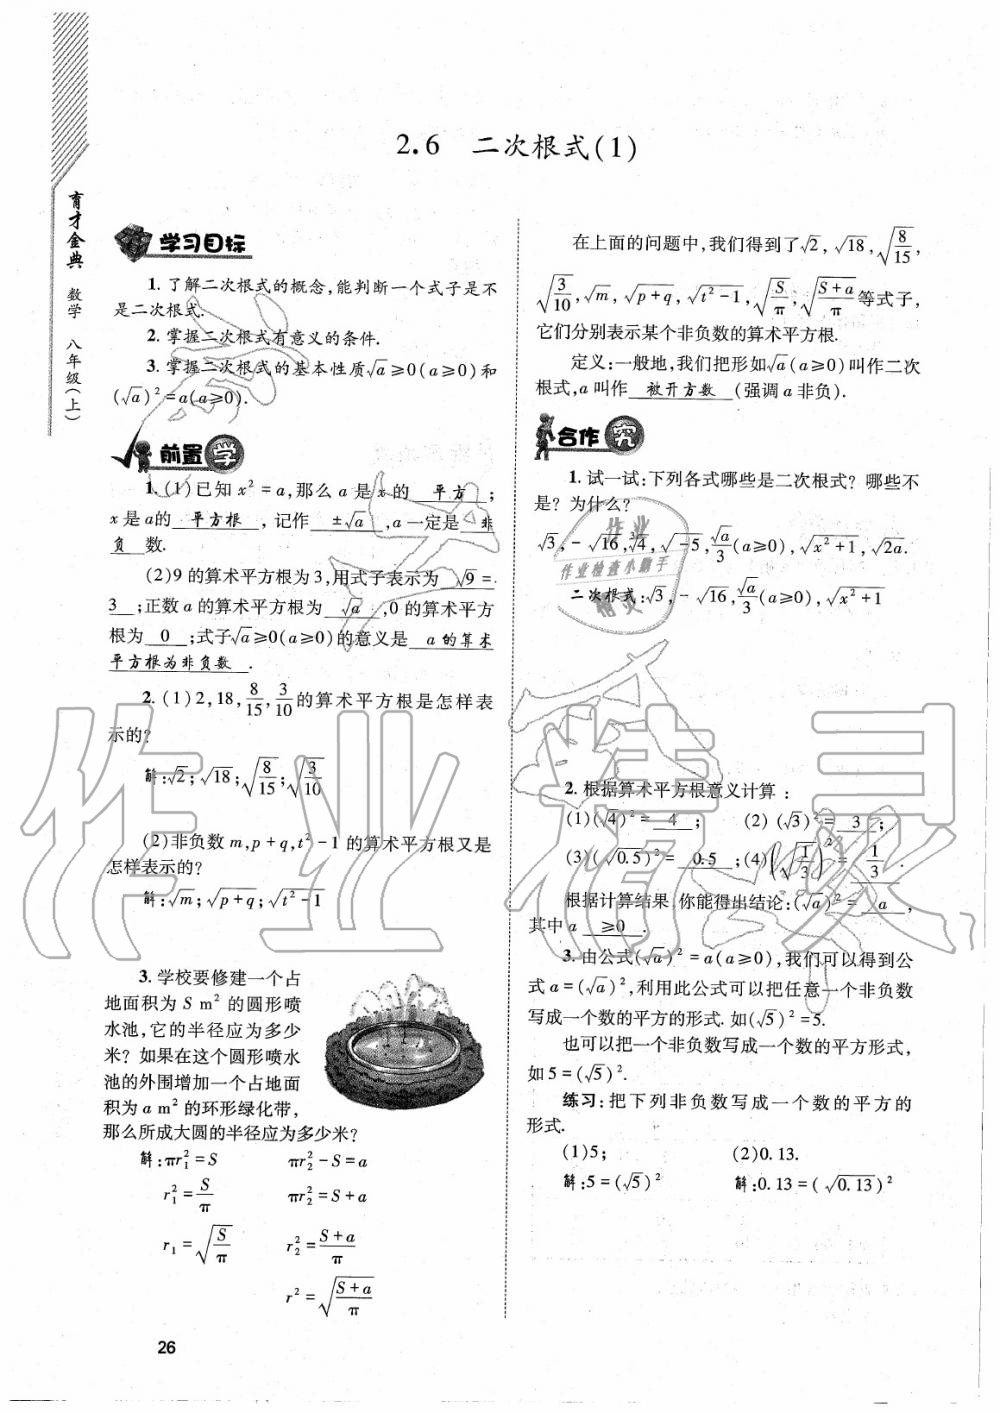 2.6 二次根式(1)
育才金典 数学 八年级(上)
学习目标
1.了解二次根式的概念,能判断一个式子是不
是二次根式.
2.掌握二次根式有意义的条件.
3.掌握二次根式的基本性质√a≥0(a≥0)和
(√a)²=a(a≥0).
前置学
1.(1)已知x²=a,那么a是x的 平方 ;
x是a的 平方根 ,记作 ±√a ,a一定是 非
负 数.
(2)9的算术平方根为3,用式子表示为 √9=
3 ;正数a的算术平方根为 √a ,0的算术平方
根为 0 ;式子√a≥0(a≥0)的意义是 a的算术
平方根为非负数 .
2.(1)2,18,8/15,3/10的算术平方根是怎样表
示的?
解:√2;√18;√(8/15);√(3/10)
(2)非负数m,p+q,t²-1的算术平方根又是
怎样表示的?
解:√m;√(p+q);√(t²-1)
3.学校要修建一个占
地面积为S m²的圆形喷
水池,它的半径应为多少
米?如果在这个圆形喷水
池的外围增加一个占地面
积为a m²的环形绿化带,
那么所成大圆的半径应为多少米?
解:πr₁²=S πr₂²-S=a
r₁²=S/π πr₂²=S+a
r₁=√(S/π) r₂²=(S+a)/π
r²=√((S+a)/π)
26
在上面的问题中,我们得到了√2,√18,√(8/15),
√(3/10),√m,√(p+q),√(t²-1),√(S/π),√((S+a)/π)等式子,
它们分别表示某个非负数的算术平方根.
定义:一般地,我们把形如√a(a≥0)叫作二次
根式,a叫作 被开方数 (强调a非负).
合作究
1.试一试:下列各式哪些是二次根式?哪些不
是?为什么?
√3,-√16,∛4,√-5,√a/3(a≥0),√(x²+1),√2a.
二次根式:√3,-√16,√a/3(a≥0),√(x²+1)
2.根据算术平方根意义计算:
(1)(√4)²= 4 ; (2)(√3)²= 3 ;
(3)(√0.5)²= 0.5 ;(4)(√(1/3))²= 1/3 .
根据计算结果,你能得出结论:(√a)²= a ,
其中a ≥0 .
3.由公式(√a)²=a(a≥0),我们可以得到公
式a=(√a)²,利用此公式可以把任意一个非负数
写成一个数的平方的形式.如(√5)²=5.
也可以把一个非负数写成一个数的平方形式,
如5=(√5)².
练习:把下列非负数写成一个数的平方的
形式.
(1)5; (2)0.13.
解:5=(√5)² 解:0.13=(√0.13)²
作业精灵
作业
作业检查小助手
精灵